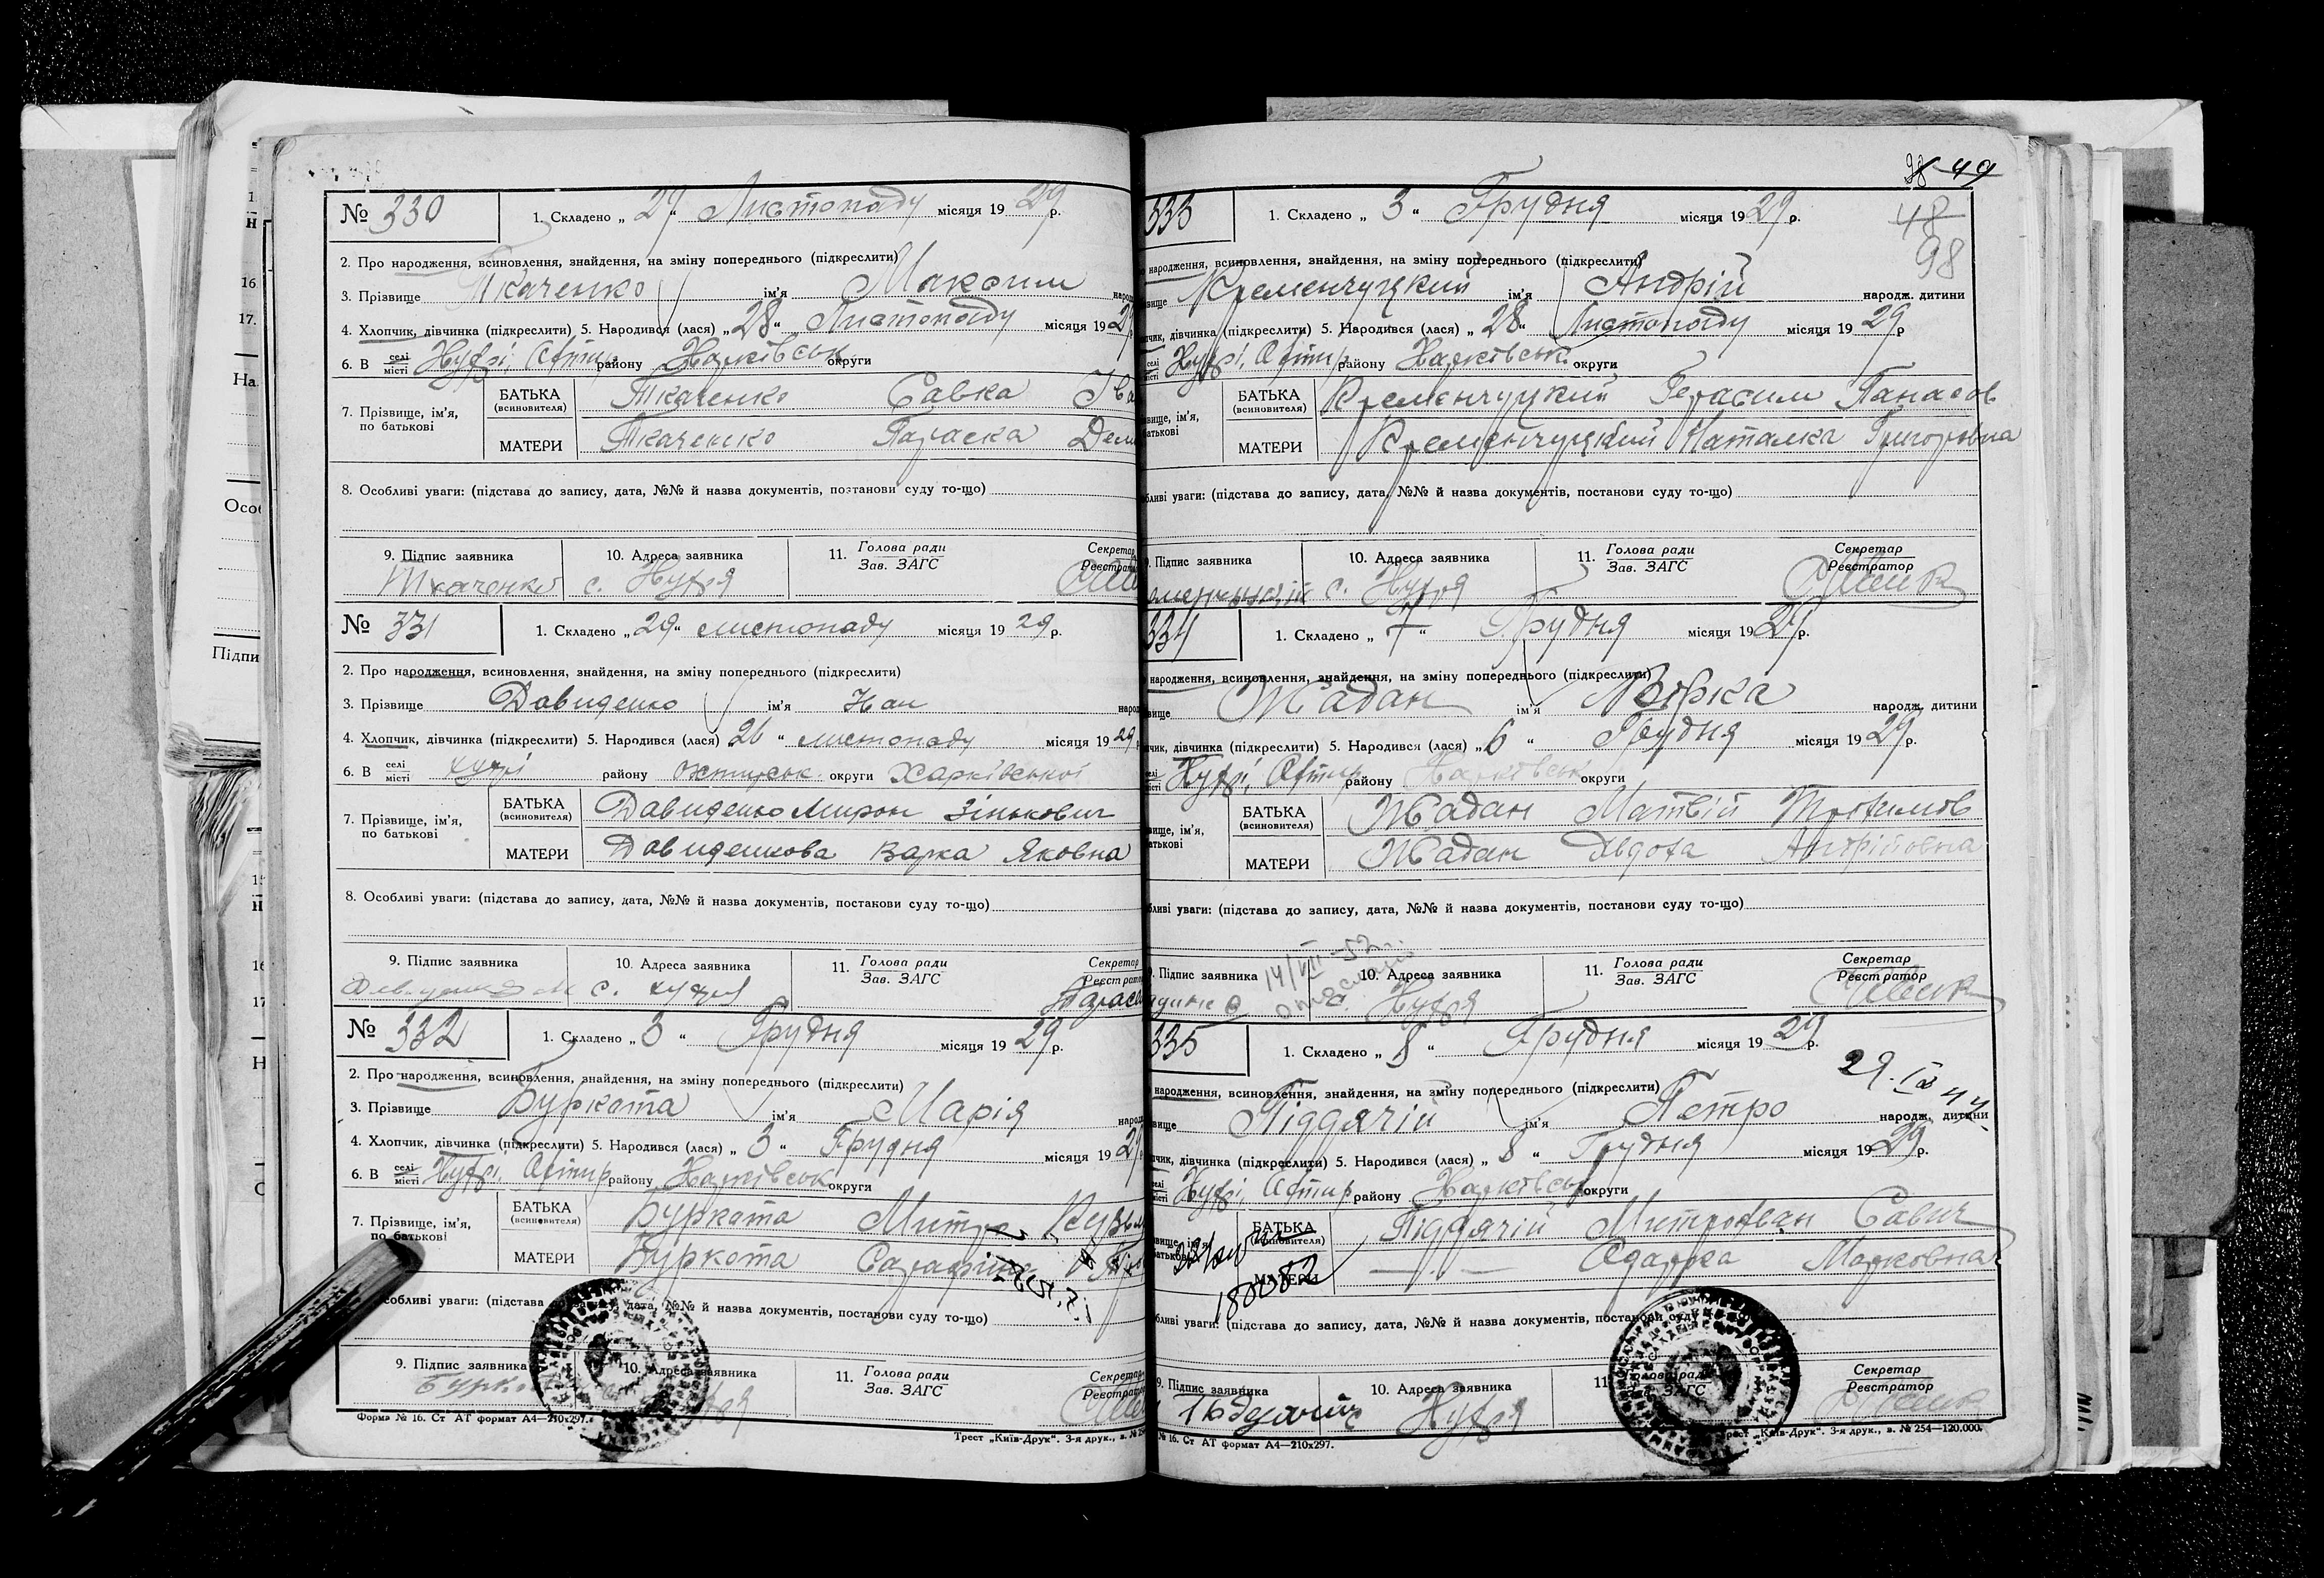 № 330
1. Складено „ 29 “ Листопаду місяця 19 29 р.
2. Про народження, всиновлення, знайдення, на зміну попереднього (підкреслити)
3. Прізвище Ткаченко ім'я Максим народ
4. Хлопчик, дівчинка (підкреслити) 5. Народився (лася) „ 28 “ Листопаду місяця 19 2
6. В селі місті Хухрі, Охтир району Харківськ округи
7. Прізвище, ім'я, по батькові
БАТЬКА (всиновителя) Ткаченко Савка Іва
МАТЕРИ Ткаченко Параска Дем
8. Особливі уваги: (підстава до запису, дата, №№ й назва документів, постанови суду то-що)
9. Підпис заявника 10. Адреса заявника 11. Голова ради Зав. ЗАГС Секретар Реєстрат
Ткаченко с. Хухря
№ 331
1. Складено „ 29 “ листопаду місяця 19 29 р.
2. Про народження, всиновлення, знайдення, на зміну попереднього (підкреслити)
3. Прізвище Давиденко ім'я народ
4. Хлопчик, дівчинка (підкреслити) 5. Народився (лася) 26 “ листопаду місяця 19 29
6. В селі місті хухрі району охтирськ. округи Харківської
7. Прізвище, ім'я, по батькові
БАТЬКА (всиновителя) Давиденко Мирон Зінькович
МАТЕРИ Давиденкова Варка Яковна
8. Особливі уваги: (підстава до запису, дата, №№ й назва документів, постанови суду то-що)
9. Підпис заявника 10. Адреса заявника 11. Голова ради Зав. ЗАГС Секретар Реєстрат
с. хухря
№ 332
1. Складено „ 3 “ Грудня місяця 19 29 р.
2. Про народження, всиновлення, знайдення, на зміну попереднього (підкреслити)
3. Прізвище Буркота ім'я Марія народ
4. Хлопчик, дівчинка (підкреслити) 5. Народився (лася) „ 3 “ Грудня місяця 19 29
6. В селі місті Хухрі, Охтир району Харківськ округи
7. Прізвище, ім'я, по батькові
БАТЬКА (всиновителя) Буркота Митро Кузьм
МАТЕРИ Буркота
собливі уваги: (підстава до запису, дата, №№ й назва документів, постанови суду то-що)
9. Підпис заявника 10. Адреса заявника 11. Голова ради Зав. ЗАГС Секретар Реєстрат
Форма № 16. Ст АТ формат А4—210х297.
Трест „Київ-Друк“. 3-я друк., в. № 25
98 49
48
98
333
1. Складено „ 3 “ Грудня місяця 19 29 р.
народження, всиновлення, знайдення, на зміну попереднього (підкреслити)
вище Кременчуцкий ім'я Андрій народж. дитини
чик, дівчинка (підкреслити) 5. Народився (лася) „ 28 “ Листопаду місяця 19 29 р
селі місті Хухрі, Охтир району Харківськ. округи
вище, ім'я, батькові
БАТЬКА (всиновителя) Кременчуцкий Герасим Панасов
МАТЕРИ Кременчуцкий Наталка Григоровна
бливі уваги: (підстава до запису, дата, №№ й назва документів, постанови суду то-що)
9. Підпис заявника 10. Адреса заявника 11. Голова ради Зав. ЗАГС Секретар Реєстратор
с. Хухря
334
1. Складено „ 7 “ Грудня місяця 19 29 р.
народження, всиновлення, знайдення, на зміну попереднього (підкреслити)
вище Жадан ім'я Вірка народж. дитини
чик, дівчинка (підкреслити) 5. Народився (лася) „ 6 “ Грудня місяця 19 29 р.
селі місті Хухрі, Охтир району Харківськ округи
вище, ім'я, батькові
БАТЬКА (всиновителя) Жадан Матвій Трохимов
МАТЕРИ Жадан Авдотя Андрійовна
бливі уваги: (підстава до запису, дата, №№ й назва документів, постанови суду то-що)
14/VII-52
9. Підпис заявника 10. Адреса заявника 11. Голова ради Зав. ЗАГС Секретар Реєстратор
с. Хухря
335
1. Складено „ 8 “ Грудня місяця 19 29 р.
народження, всиновлення, знайдення, на зміну попереднього (підкреслити)
вище Піддячій ім'я Петро народж. дитини
чик, дівчинка (підкреслити) 5. Народився (лася) „ 8 “ Грудня місяця 19 29 р.
селі місті Хухрі, Охтир району Харківськ округи
вище, ім'я, батькові
БАТЬКА (всиновителя) Піддячій Митрофан Савич
МАТЕРИ — " — Одарка Марковна
бливі уваги: (підстава до запису, дата, №№ й назва документів, постанови суду то-що)
9. Підпис заявника 10. Адреса заявника 11. Голова ради Зав. ЗАГС Секретар Реєстратор
с Хухря
№ 16. Ст АТ формат А4—210х297.
Трест „Київ-Друк“. 3-я друк., в. № 254—120.000.